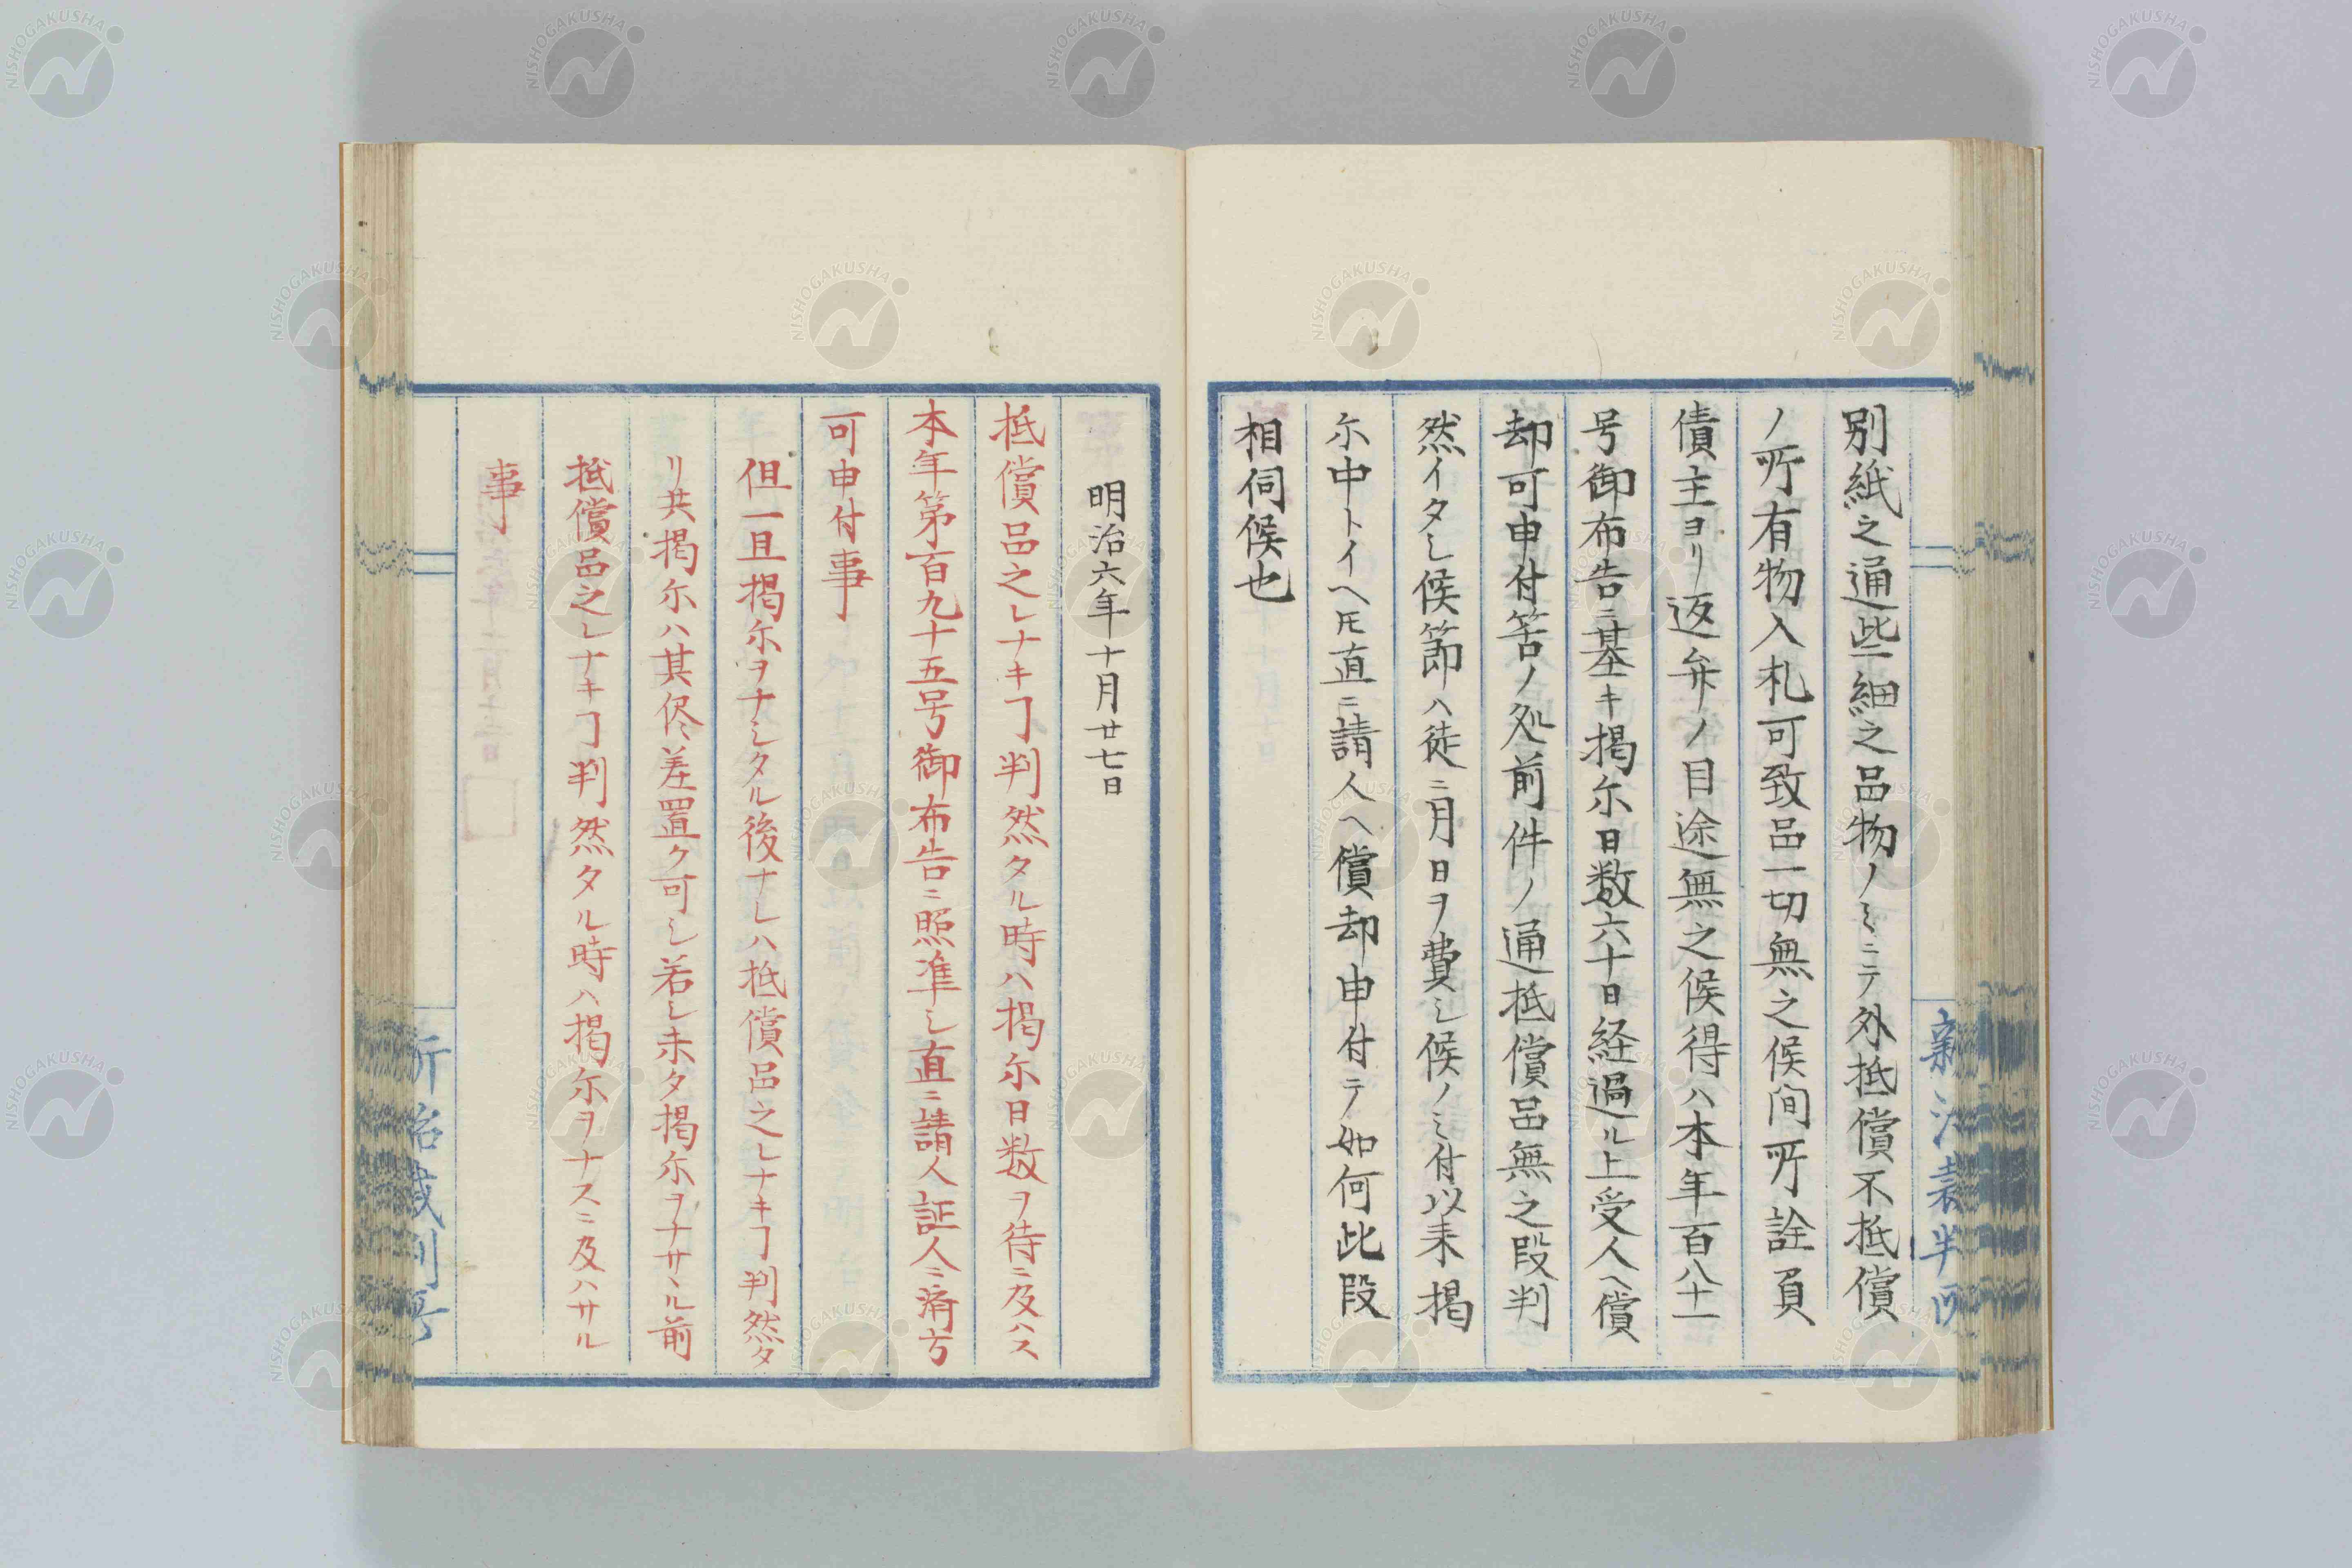 別紙之通些細之品物ノミニテ外抵償不抵償
ノ所有物入札可致品一切無之候間所詮負
債主ヨリ返弁ノ目途無之候得ハ本年百八十一
号御布告ニ基キ掲示日数六十日経過ル上受人ヘ償
却可申付筈ノ処前件ノ通抵償品無之段判
然イタシ候節ハ徒ニ月日ヲ費シ候ノミ付以来掲
示中トイヘ𪜈直ニ請人ヘ償却申付テ如何此段
相伺候也
明治六年十月廿七日
抵償品之レナキヿ判然タル時ハ掲示日数ヲ待ニ及ハス
本年第百九十五号御布告ニ照準シ直ニ請人証人ニ済方
可申付事
但一旦掲示ヲナシタル後ナレハ抵償品之レナキヿ判然タ
リ共掲示ハ其侭差置ク可シ若シ未タ掲示ヲナサヽル前
抵償品之レナキヿ判然タル時ハ掲示ヲナスニ及ハサル
事
新治裁判所
NISHOGAKUSHA